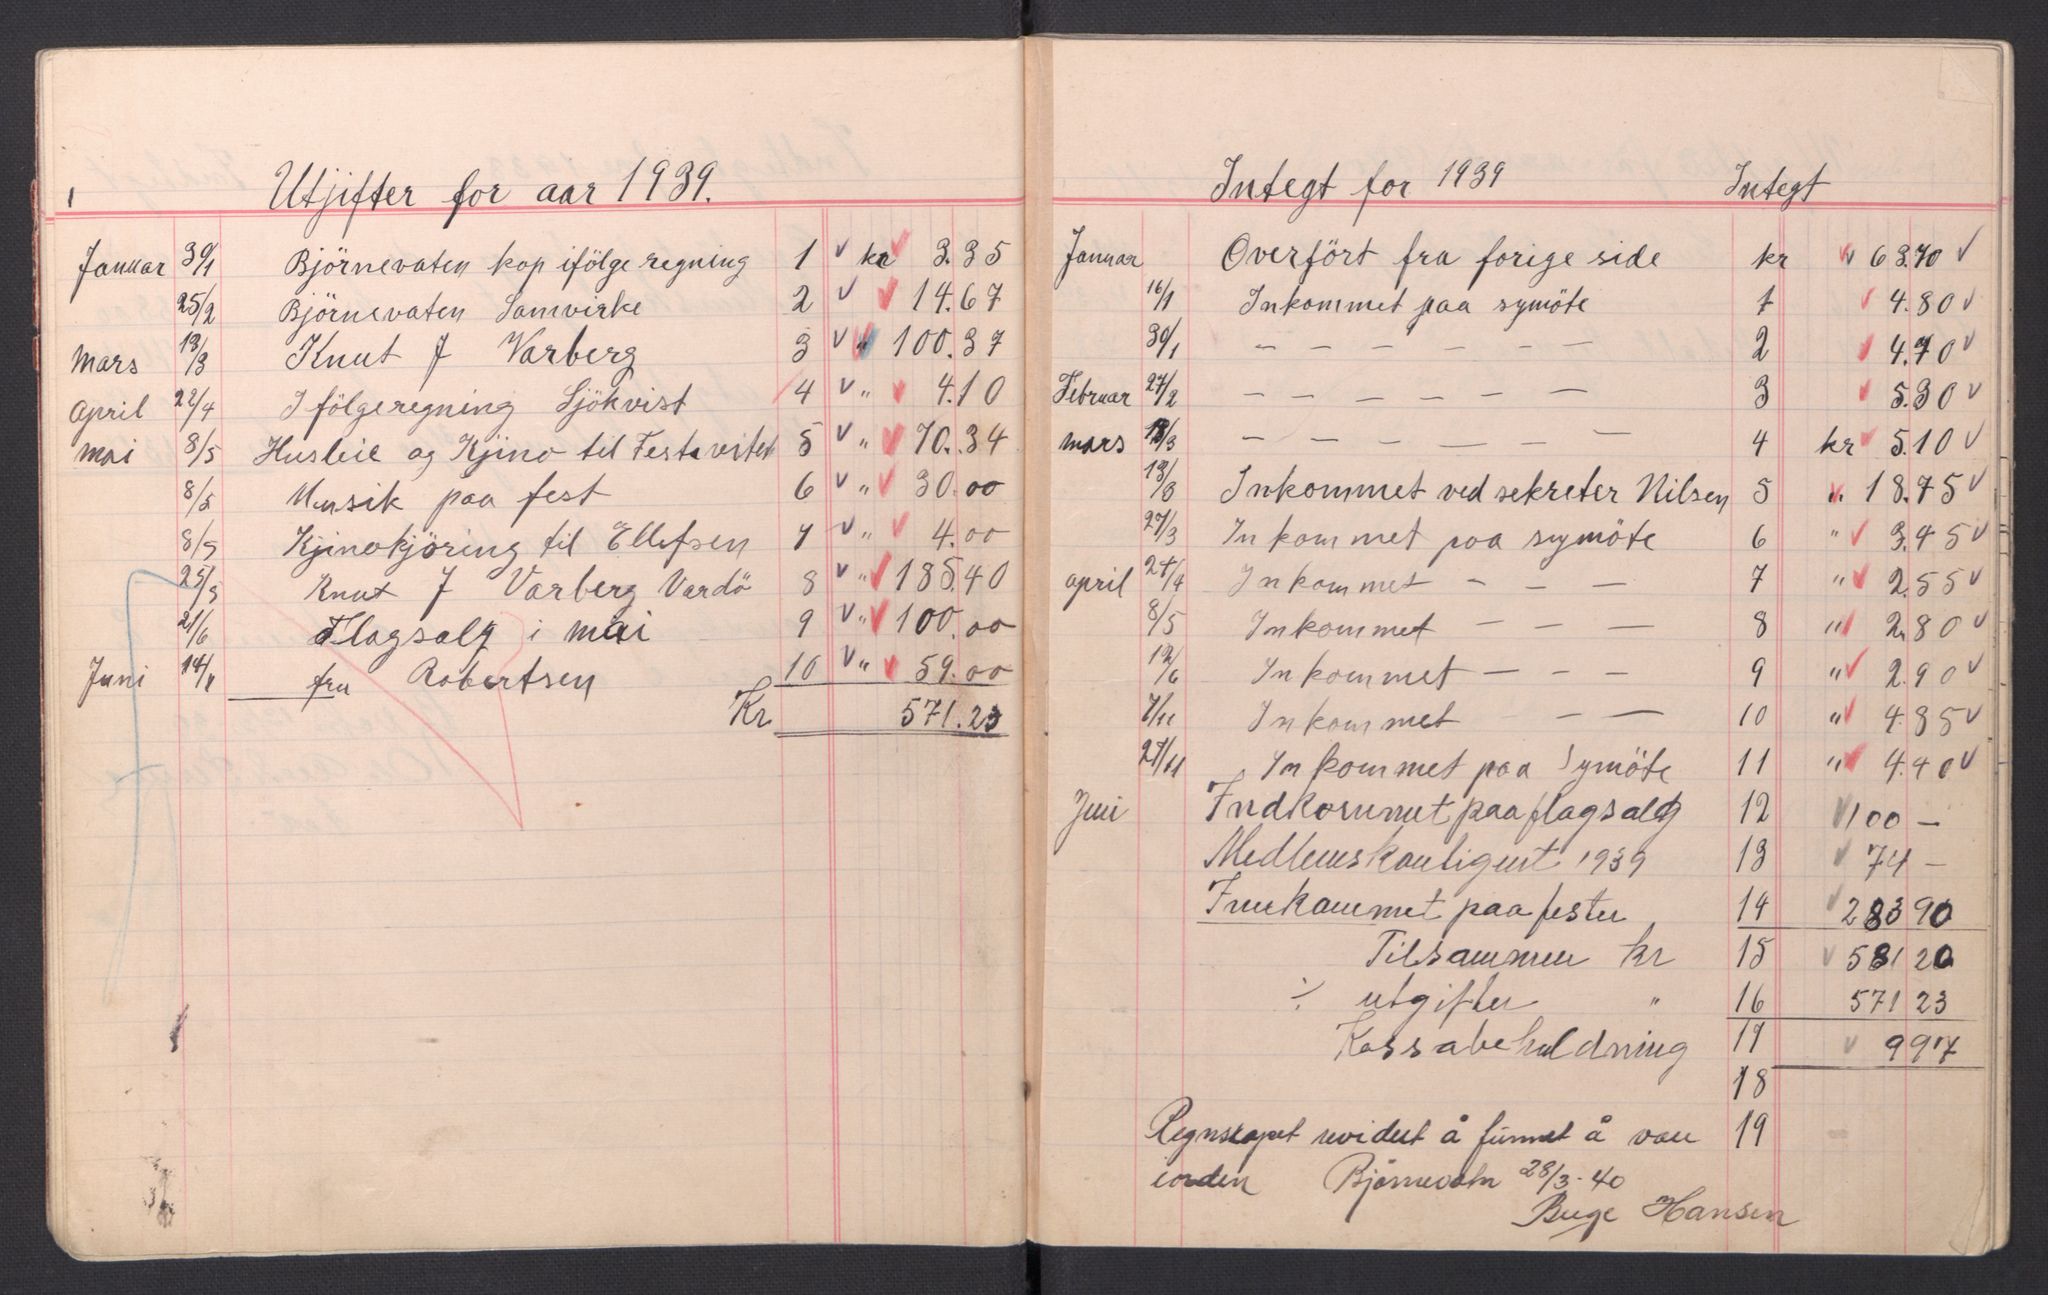 1
Utjifter for aar 1939.
Januar 30/1 Björnevaten kop ifölge regning 1 kr 3.35
25/2 Björnevaten Samvirke 2 14.67
mars 13/3 Knut J Varberg 3 " 100.37
april 22/4 I fölge regning Sjökvist 4 " 4.10
mai 8/5 Husleie og Kjino til Festevitet 5 " 70.34
8/5 Musik paa fest 6 " 30.00
8/5 Kjinokjöring til Ellefsen 7 " 4.00
25/5 Knut J Varberg Vardö 8 " 185.40
21/6 Flagsalg i mai 9 " 100.00
Juni 14/11 fru Robertsen 10 " 59.00
Kr 571.23
Integt for 1939 Integt
Januar Overfört fra forige side kr " 63.70
16/1 Inkommet paa symöte 1 4.80
30/1 — — — — — — 2 4.70
Februar 27/2 — — — — — — 3 5.30
mars 13/3 — — — — — — 4 kr 5.10
13/3 Inkommet ved sekreter Nilsen 5 " 18.75
27/3 Inkommet paa symöte 6 " 3.45
april 24/4 Inkommet — — — 7 " 2.55
8/5 Inkommet — — — 8 " 2.80
12/6 Inkommet — — — 9 " 2.90
7/11 Inkommet — — — 10 " 4.85
27/11 Inkommet paa Symöte 11 " 4.40
Juni Indkommet paa flagsalg 12 100 —
Medlemskontigent 1939 13 74 —
Innkommet paa fester 14 283 90
Tilsammen kr 15 581 20
÷ utgifter " 16 571 23
Kassabeholdning 17 9 97
18
Regnskapet revidert å funnet å være 19
iorden Björnevatn 28/3-40
Buge Hansen